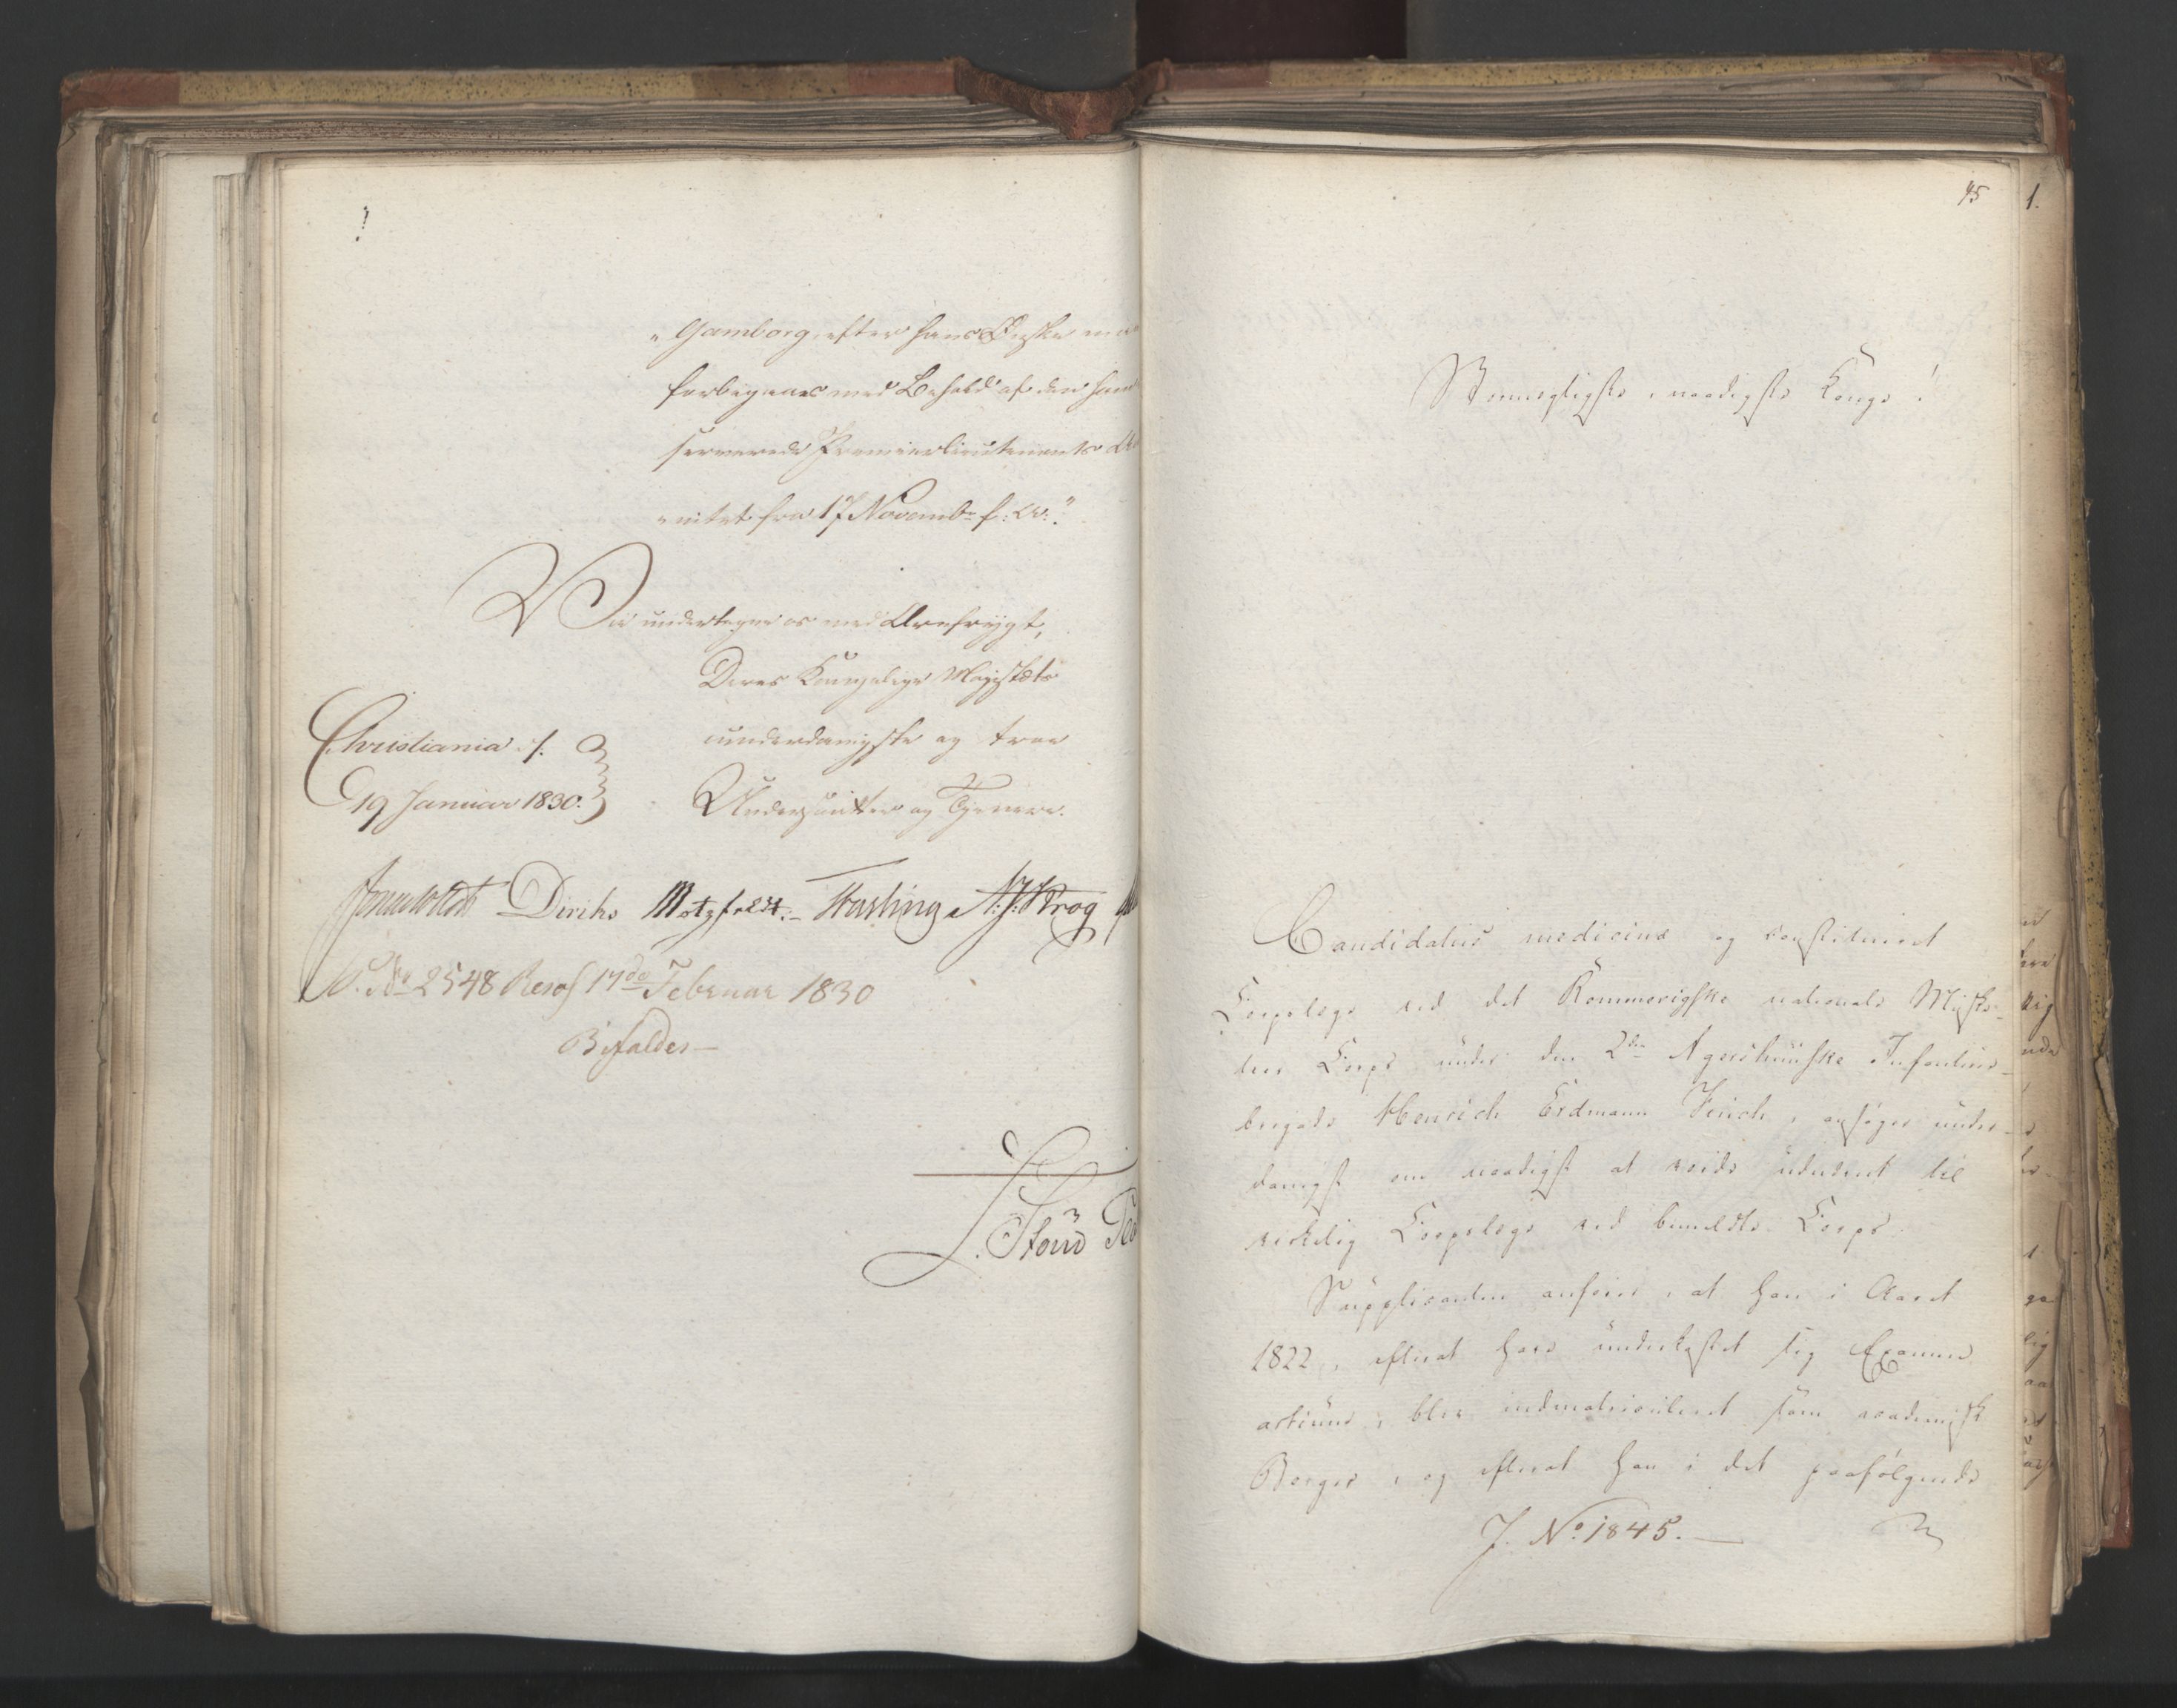 !
„Gamborg, efter hans Ønske maa
forbigaaes med Behold af den ham
serverede Premierlieutenants An
„nitet fra 17 Novembr f: A:."
Vi undertegne os med Ærefrygt,
Deres Kongelige Majestæts
underdanigste og troe
Undersaatter og Tjenere.
Christiania. f.
19 Januar 1830.
Diriks Motzfeldt.- Fasting N.J. Krog
No 2548 Resol 17de Februar 1830
Bifaldes—
45
1.
Stormægtigste, naadigste Konge!
Candidatus medicinæ og constitueret
Corpslæge ved det Rommerigske nationale Muske-
teer Corps under den 2den Agershuuske Infanterie-
brigade Henrich Erdmann Ferich, ansøger under-
danigst om naadigst at vorde udnævnt til
virkelig Corpslæge ved bemeldte Corps.
Supplicanten anfører, at han i Aaret
1822, efterat have underkastet sig Examen
artium, blev indmatriculeret som academisk
Borger, og efterat han i det paafølgende
J. No. 1845.—